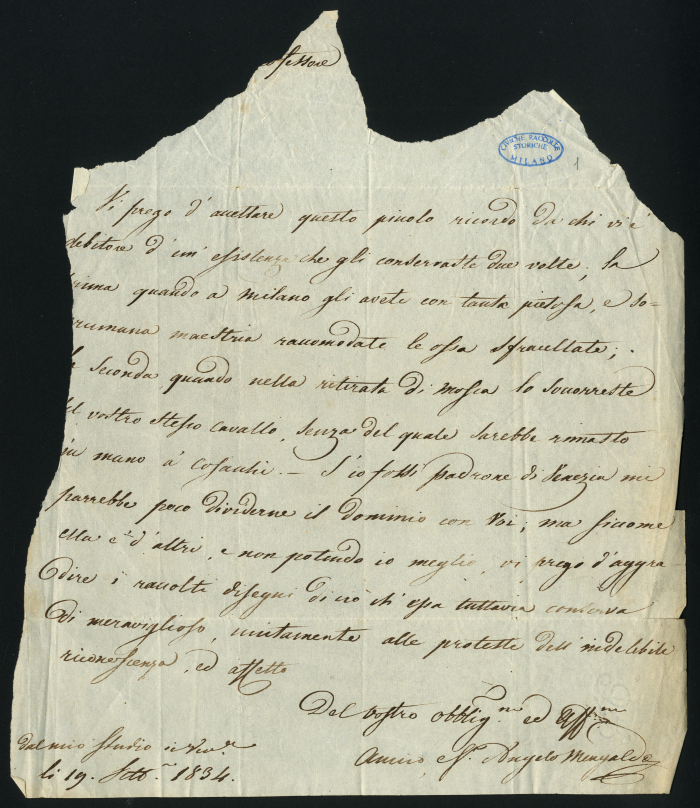 fessore
CIVICHE RACCOLTE
STORICHE
MILANO
1
Vi prego d'accettare questo picolo ricordo da chi vi è
debitore d'un' essistenza che gli conservaste due volte, la
prima quando a Milano gli avete con tanta pietosa, e so=
vrumana maestria racomodate le ossa sfracellate;
la seconda quando nella ritirata di Mosca lo socorreste
del vostro stesso cavallo, senza del quale sarebbe rimasto
in mano a' Cosachi. — S'io fossi padrone di Venezia mi
parrebbe poco dividerne il dominio con Voi; ma sicome
ella è d'altri, e non potendo io meglio, vi prego d'aggra=
dire i raccolti disegni di ciò ch'essa tuttavia conserva
di meraviglioso, unitamente alle proteste dell'indelebile
riconoscienza, ed affetto
Del vostro obblig.mo ed aff.mo
Amico Angelo Mengaldo
dal mio studio in
li 19. Sett.e 1834.